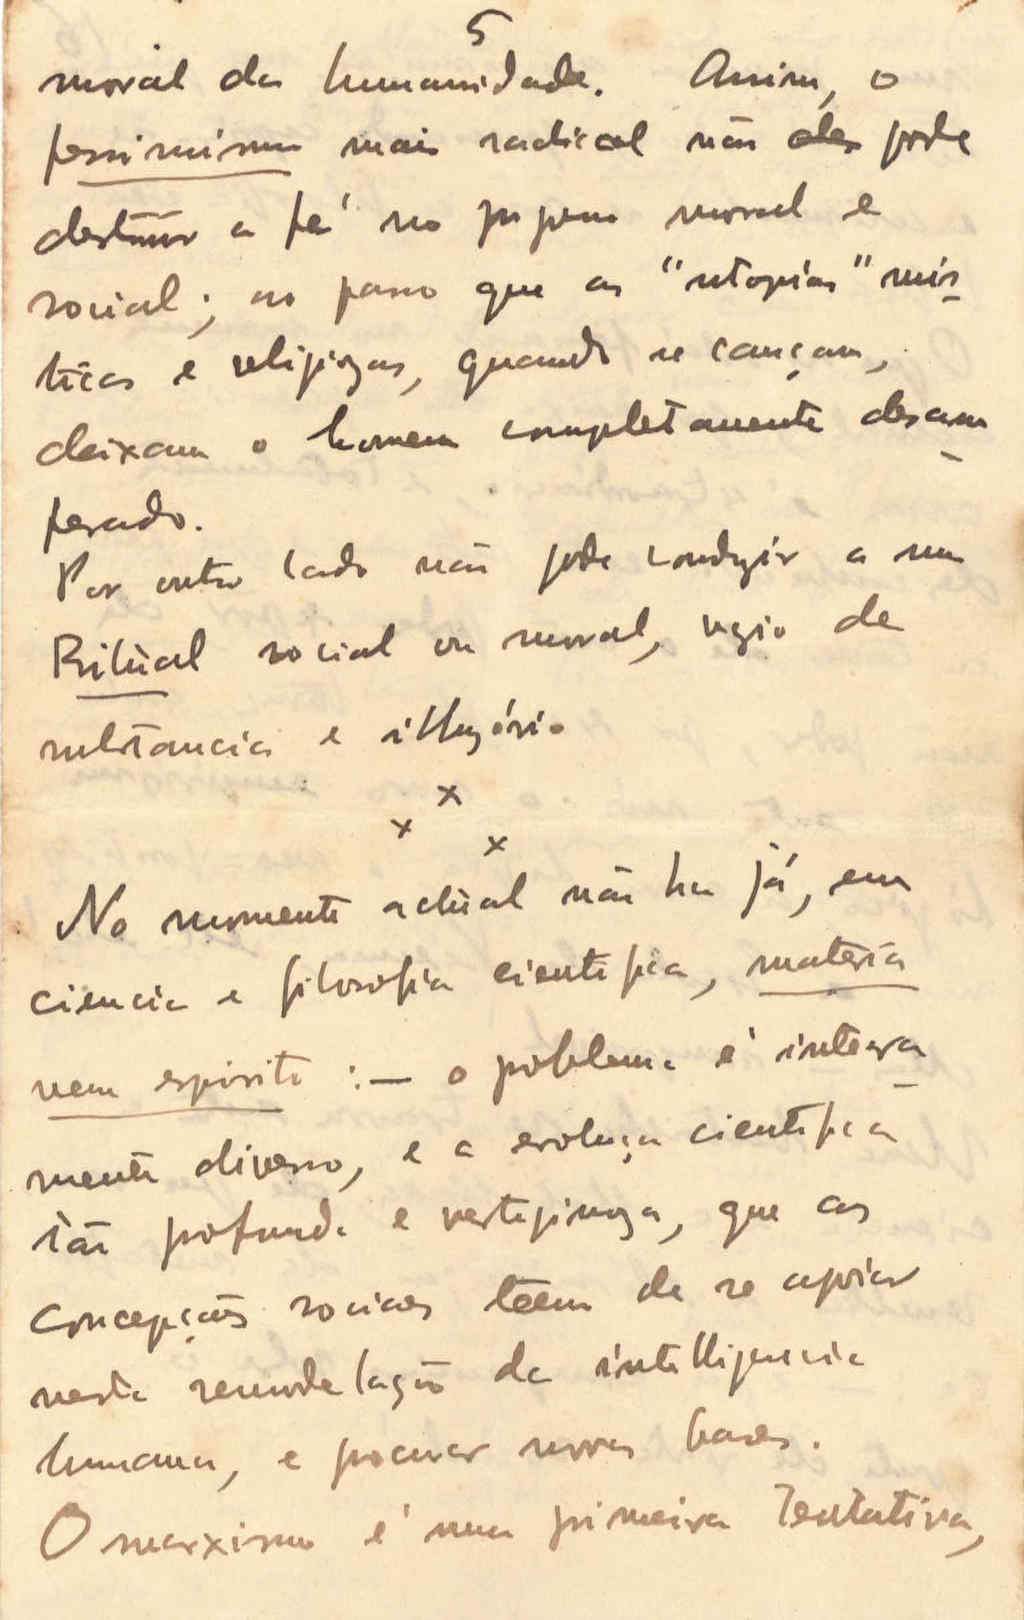 5
moral da humanidade. Assim, o
pessimismo mais radical não des pode
destruir a fé no progresso moral e
social; ao passo que as "utopias" mís-
ticas e religiozas, quando se cançam,
deixam o homem completamente desam-
perado.
Por outro lado não pode conduzir a um
Ritual social ou moral, vazio de
substancia e illuzório
x x x
No momento actual não ha já, em
ciencia e filosofia cientifica, materia
nem espirito :— o problema é inteira-
mente diverso, e a evoluçã cientifica
tão profunda e vertiginoza, que as
concepções sociaes têem de se apoiar
nesta remodelação da intelligencia
humana, e procurar novas bases.
O marxismo é uma primeira tentativa,